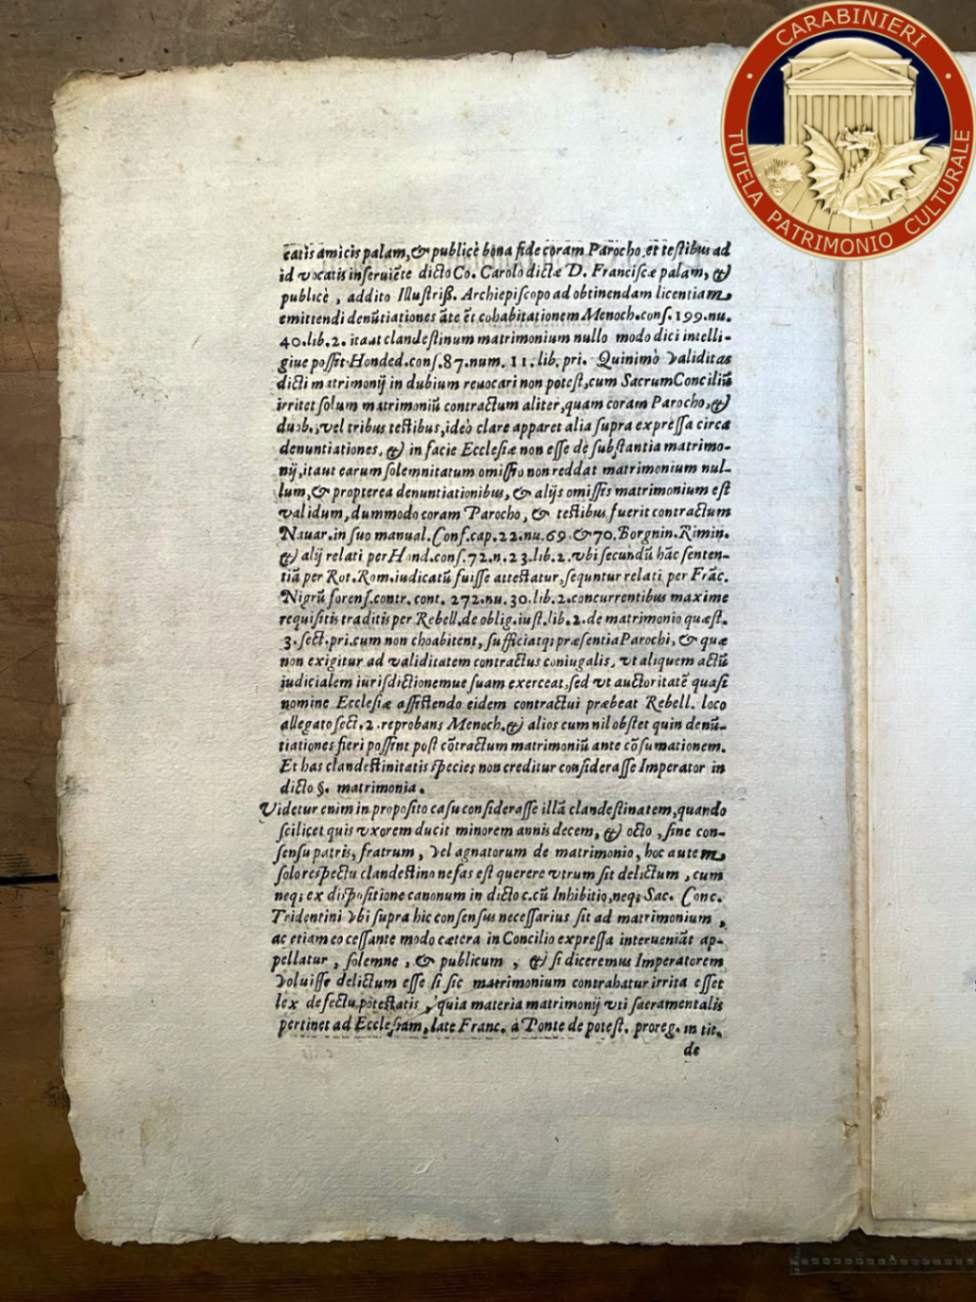 CARABINIERI
TUTELA PATRIMONIO CULTURALE
catis amicis palam, & publicè bona fide coram Parocho, et testibus ad
id vocatis inseruiẽte dicto Co. Carolo dictæ D. Franciscæ palam, &
publicè, addito Illustriß. Archiepiscopo ad obtinendam licentiam
emittendi denũtiationes ãte ẽt cohabitationem Menoch. cons. 199. nu.
40. lib. 2. ita ut clandestinum matrimonium nullo modo dici intelli-
giue possit Honded. cons. 87. num. 11. lib. pri. Quinimò Validitas
dicti matrimonij in dubium reuocari non potest, cum Sacrum Conciliũ
irritet solum matrimoniũ contractum aliter, quam coram Parocho, &
duob., vel tribus testibus, ideò clare apparet alia supra expressa circa
denuntiationes, & in facie Ecclesiæ non esse de substantia matrimo-
nij, itaut earum solemnitatum omissio non reddat matrimonium nul-
lum, & propterea denuntiationibus, & alijs omissis matrimonium est
validum, dummodo coram Parocho, & testibus fuerit contractum
Nauar. in suo manual. Conf. cap. 22. nu. 69. & 70. Borgnin. Rimin.
& alij relati per Hond. cons. 72. n. 23. lib. 2. vbi secundũ hãc senten-
tiã per Rot. Rom. iudicatũ fuisse attestatur, sequntur relati per Frãc.
Nigrũ forens. contr. cont. 272. nu. 30. lib. 2. concurrentibus maxime
requisitis traditis per Rebell. de oblig. iust. lib. 2. de matrimonio quæst.
3. sect. pri. cum non choabitent, sufficiatq; præsentia Parochi, & quæ
non exigitur ad validitatem contractus coniugalis, vt aliquem actũ
iudicialem iurisdictionemue suam exerceat, sed vt auctoritatẽ quasi
nomine Ecclesiæ assistendo eidem contractui præbeat Rebell. loco
allegato sect. 2. reprobans Menoch. & alios cum nil obstet quin denũ-
tiationes fieri possint post cõtractum matrimoniũ ante cõsumationem.
Et has clandestinitatis species non creditur considerasse Imperator in
dicto §. matrimonia.
Videtur enim in proposito casu considerasse illã clandestinatem, quando
scilicet quis vxorem ducit minorem annis decem, & octo, sine con-
sensu patris, fratrum, Vel agnatorum de matrimonio, hoc autem
solo respectu clandestino nefas est querere vtrum sit delictum, cum
neq; ex dispositione canonum in dicto c. cũ Inhibitio, neq; Sac. Conc.
Tridentini Vbi supra hic consensus necessarius sit ad matrimonium,
ac etiam eo cessante modo cætera in Concilio expressa interueniãt ap-
pellatur, solemne, & publicum, & si diceremus Imperatorem
Voluisse delictum esse si sic matrimonium contrahatur irrita esset
lex defectu potestatis, quia materia matrimonij vti sacramentalis
pertinet ad Ecclesiam, late Franc. à Ponte de potest. proreg. in tit.
de